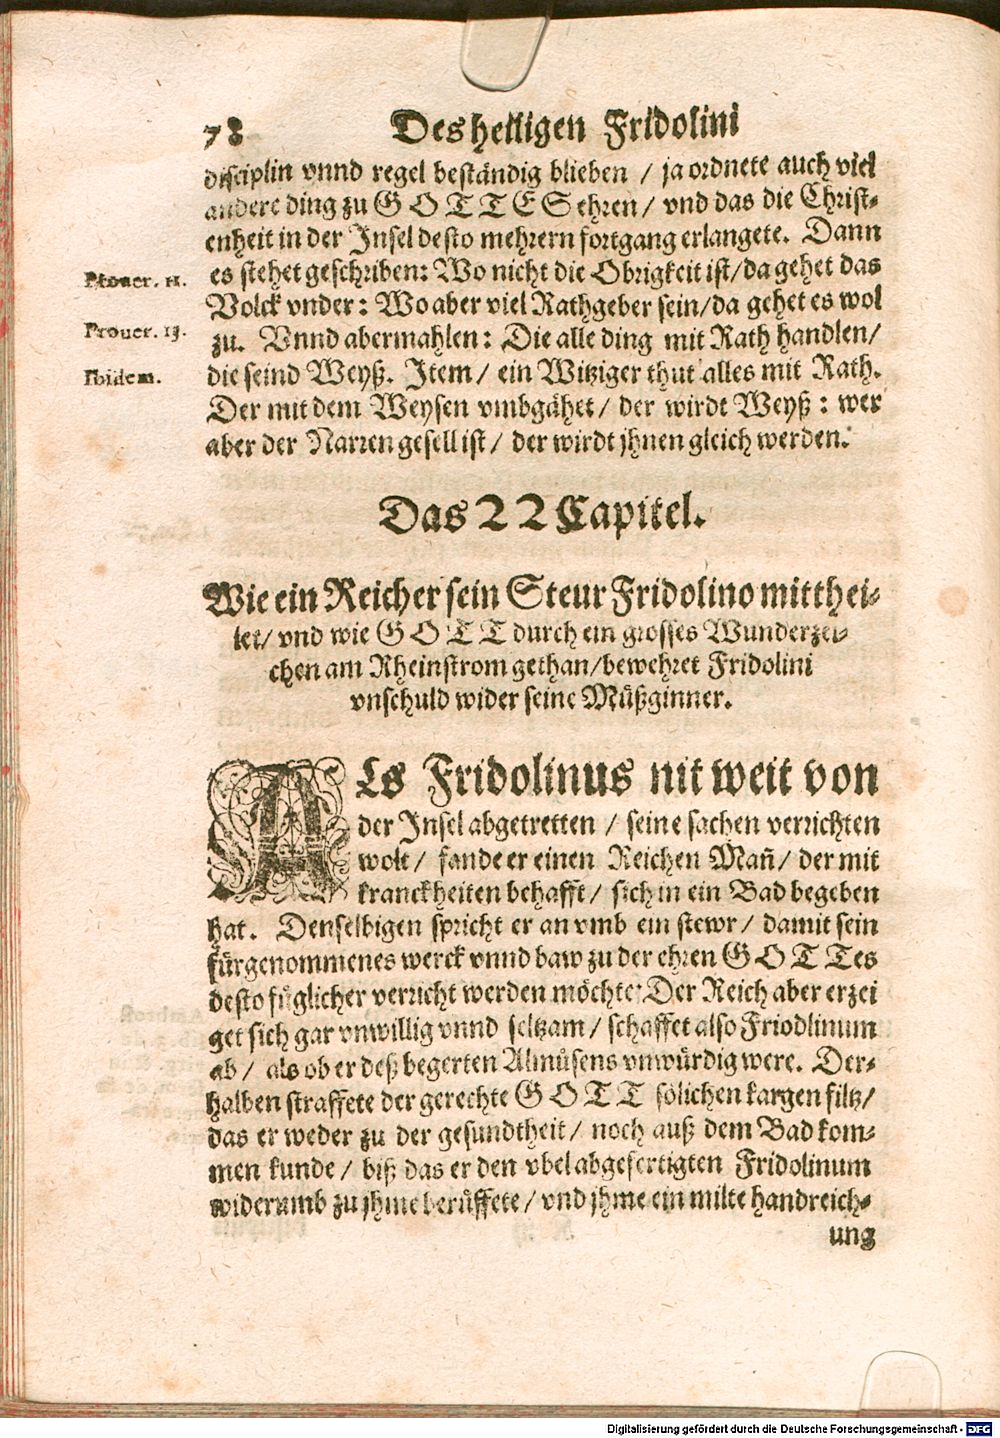 78 Des heiligen Fridolini
disciplin vnnd regel beständig blieben / ja ordnete auch viel
andere ding zu GOTTES ehren / vnd das die Christ-
enheit in der Insel desto mehrern fortgang erlangete. Dann
Prouer. 11. es stehet geschriben: Wo nicht die Obrigkeit ist / da gehet das
Volck vnder: Wo aber viel Rathgeber sein / da gehet es wol
Prouer. 13. zu. Vnnd abermahlen: Die alle ding mit Rath handlen /
Ibidem. die seind Weyß. Item / ein Witziger thut alles mit Rath.
Der mit dem Weysen vmbgåhet / der wirdt Weyß: wer
aber der Narren gesell ist / der wirdt jhnen gleich werden.
Das 22 Capitel.
Wie ein Reicher sein Steur Fridolino mitthei-
let / vnd wie GOTT durch ein grosses Wunderzei-
chen am Rheinstrom gethan / bewehret Fridolini
vnschuld wider seine Müßginner.
ALs Fridolinus nit weit von
der Insel abgetretten / seine sachen verrichten
wolt / fande er einen Reichen Mañ / der mit
kranckheiten behafft / sich in ein Bad begeben
hat. Denselbigen spricht er an vmb ein stewr / damit sein
fürgenommenes werck vnnd baw zu der ehren GOTTes
desto füglicher verricht werden möchte: Der Reich aber erzei
get sich gar vnwillig vnnd seltzam / schaffet also Friodlinum
ab / als ob er deß begerten Almůsens vnwürdig were. Der-
halben straffete der gerechte GOTT sölichen kargen filtz /
das er weder zu der gesundtheit / noch auß dem Bad kom-
men kunde / biß das er den vbel abgefertigten Fridolinum
widerumb zu jhme berůffete / vnd jhme ein milte handreich-
ung
Digitalisierung gefördert durch die Deutsche Forschungsgemeinschaft - DFG